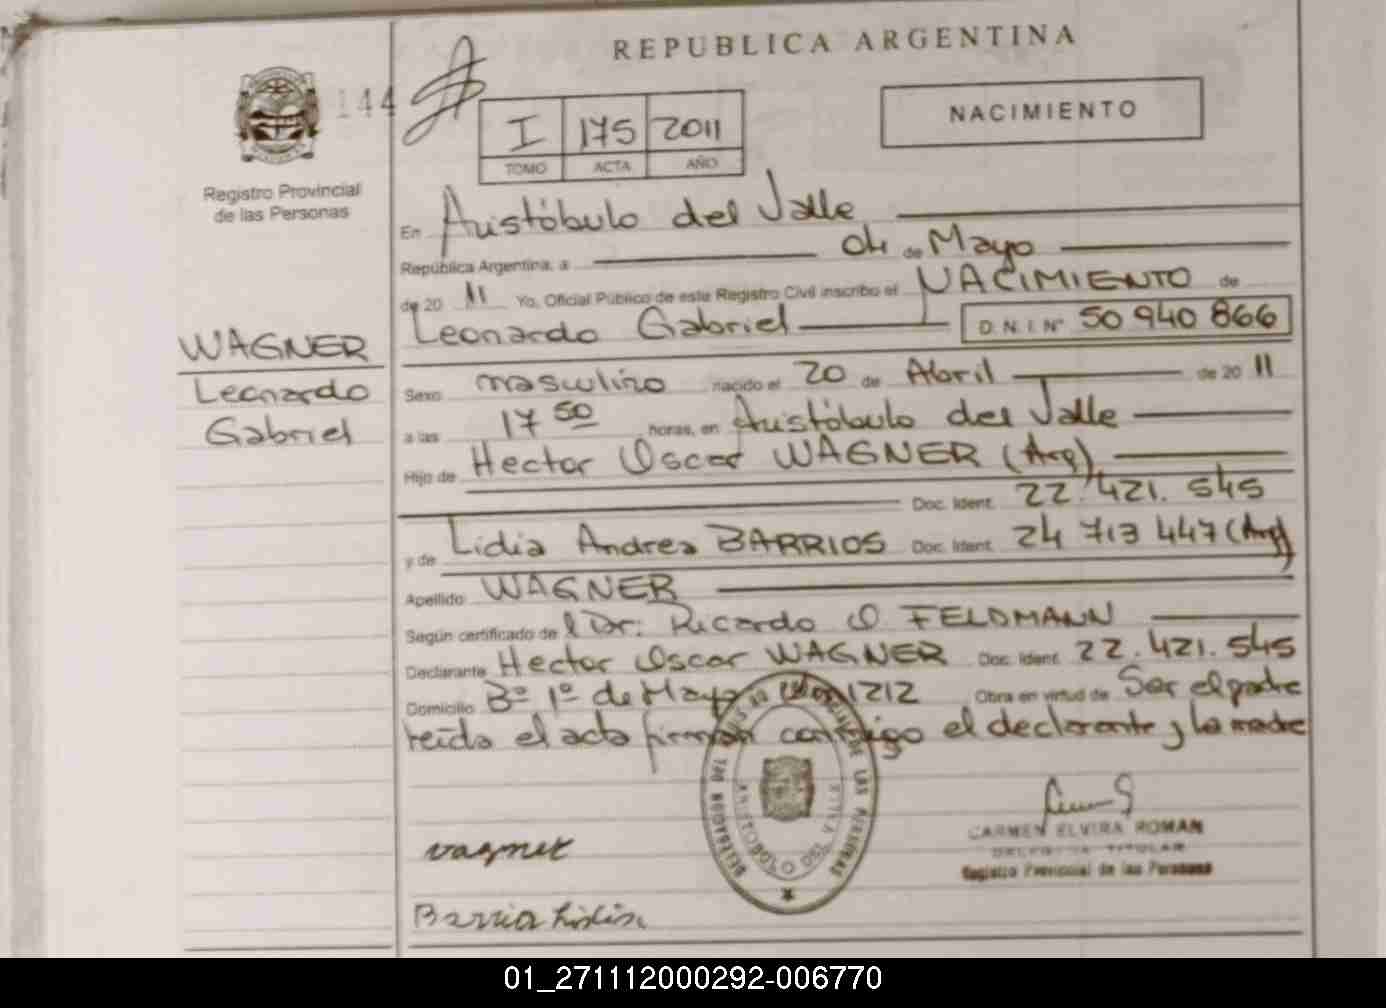 REPUBLICA ARGENTINA
144
I 175 2011
TOMO ACTA AÑO
NACIMIENTO
Registro Provincial
de las Personas
En Aristóbulo del Valle
República Argentina, a 04 de Mayo
de 20 11 Yo, Oficial Público de este Registro Civil inscribo el NACIMIENTO de
Leonardo Gabriel D.N.I. Nº 50 940 866
WAGNER
Leonardo
Gabriel
Sexo masculino nacido el 20 de Abril de 20 11
a las 17 50 horas, en Aristóbulo del Valle
Hijo de Hector Oscar WAGNER (Arg)
Doc. Ident. 22.421.545
y de Lidia Andrea BARRIOS Doc. Ident. 24 713 447 (Arg)
Apellido WAGNER
Según certificado del Dr: Ricardo O FELDMANN
Declarante Hector Oscar WAGNER Doc. Ident. 22.421.545
Domicilio Bº 1º de Mayo 1212 Obra en virtud de Ser el padre
leída el acta firman conmigo el declarante y la madre
DE LAS PERSONAS
wagner
CARMEN ELVIRA ROMAN
DELEGADA TITULAR
Registro Provincial de las Personas
Barrios Lidia
01_271112000292-006770